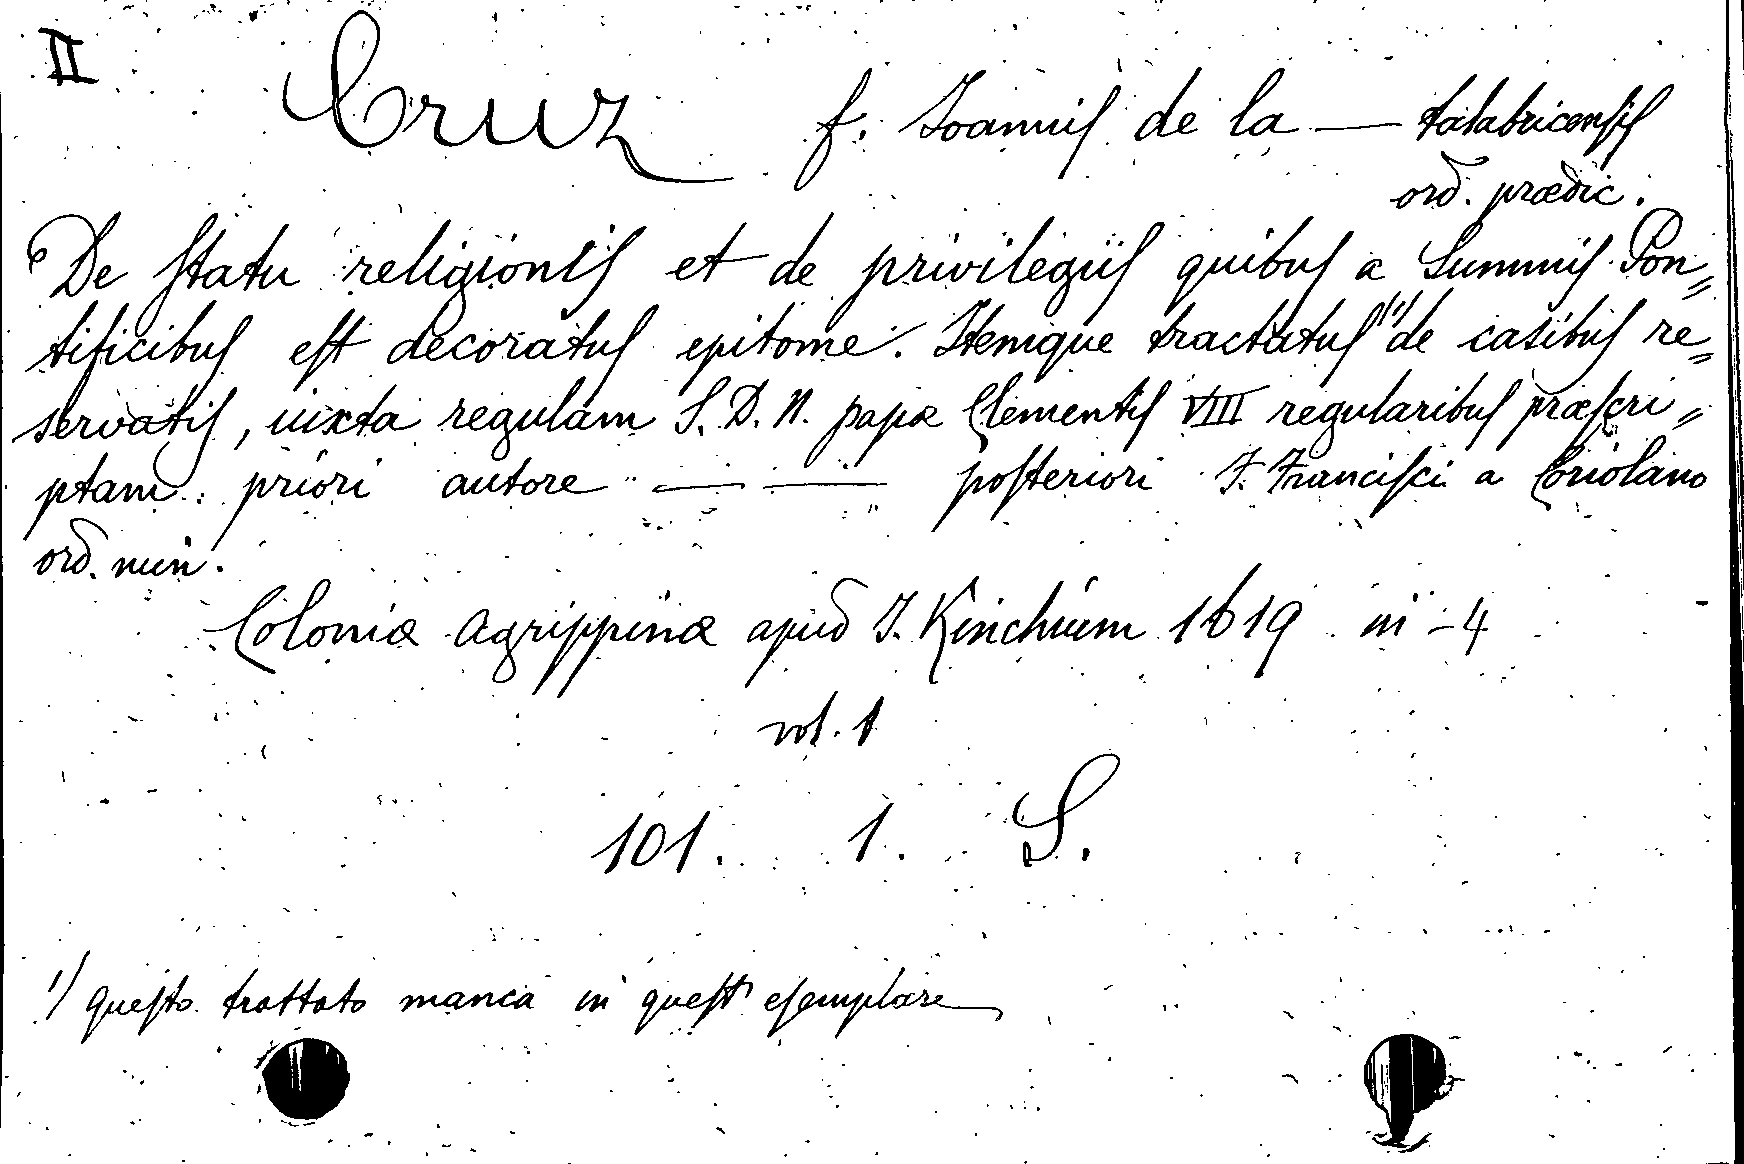 II Cruz f. Joannis de la — talabricensis
ord. prædic.
De statu religionis et de privilegiis quibus a Summis Pon=
tificibus est decoratus epitome. Itemque tractatus 1) de casibus re=
servatis, iuxta regulam S. D. N. papæ Clementis VIII regularibus præscri=
ptam: priori autore — — posteriori F. Francisci a Coriolano
ord. min.
Coloniæ Agrippinæ apud J. Kinchium 1619 in -4
vol. 1
101. 1. S.
1) questo trattato manca in quest' esemplare